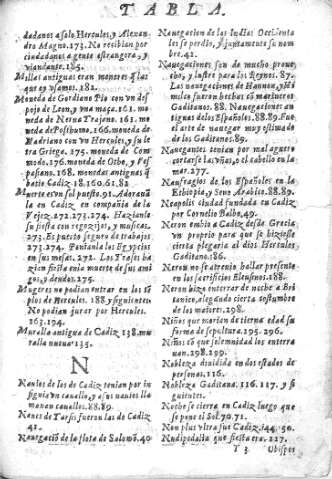 TABLA.
dadanos a solo Hercules, y Alexan
dro Magno. 173. No recibian por
ciudadano a gente estrangera, y
viandante. 185.
Millas antiguas eran menores q̃ las
que oy vsamos. 182.
Moneda de Gordiano Pio con vn des
pojo de Leon, y vna maça. 161. mo
neda de Nerua Trajano. 161. mo
neda de Posthumo. 166. moneda de
Hadriano con vn Hercules, y su le
tra Griega. 175. moneda de Com
modo. 176. moneda de Otho, y Ves
pasiano. 168. monedas antiguas q̃
batio Cadiz. 18. 160. 61. 82
Muerte es vn fol puesto. 91. Adorauã
la en Cadiz en compañia de la
Vejez. 272. 273. 274. Hazianle
su fiesta con regozijos, y musicas.
273. Es puerto seguro de trabajos
274. Pontanla los Egypcios
en sus mesas. 272. Los Trajes ha
zien fiesta enla muerte de sus ami
gos, y deudos. 275.
Mugeres no podian entrar en los tẽ
plos de Hercules. 188. y siguientes.
No podian jurar por Hercules.
163. 194.
Muralla antigua de Cadiz 138. mu
ralla nueua 135.
N
Nauios de los de Cadiz tenian por in
signia vn cauallo, y a sus nauios lla
manan cauallos. 88. 89.
Naues de Tarsis fueron las de Cadiz
42.
Nauegaciõ de la flota de Salomõ. 40
Nauegacion de las Indias Occidenta
les se perdio, y juntamente su nom
bre. 42.
Nauegaciones son de mucho proue-
cho, y lustre para los Reynos. 87.
Las nauegaciones de Hannon, y Hi
milco fueron hechas cõ marineros
Gaditanos. 88. Nauegaciones an
tiguas de los Españoles. 88. 89. Fue
el arte de nauegar muy estimado
de los Gaditanos. 89.
Nauegantes tenian por mal aguero
cortarse las vñas, o el cabello en la
mar. 277.
Naufragios de los Españoles en la
Ethiopia, y Seno Arabico. 88. 89.
Neapolis ciudad fundada en Cadiz
por Cornelio Balbo. 49.
Neron embio a Cadiz desde Grecia
vn proprio para que se biziesse
cierta plegaria al dios Hercules
Gaditano. 186.
Neron no se atreuio hallar presente
en los sacrificios Eleusinos. 188.
Neron hizo enterrar de noche a Bri
tanico, alegando cierta costumbre
de los mayores. 298.
Niños que morian de tierna edad su
forma de sepultura. 195. 296.
Niños cõ que solemnidad los enterra
uan. 298. 299.
Nobleza diuidida en dos estados de
personas. 116.
Nobleza Gaditana. 116. 117. y si
guientes.
Noche se cierra en Cadiz luego que
se pone el Sol. 70. 71.
Non plus vltra fue Cadiz. 144. 50.
Nudipedalia que fiesta era. 227.
T 3 Obispos